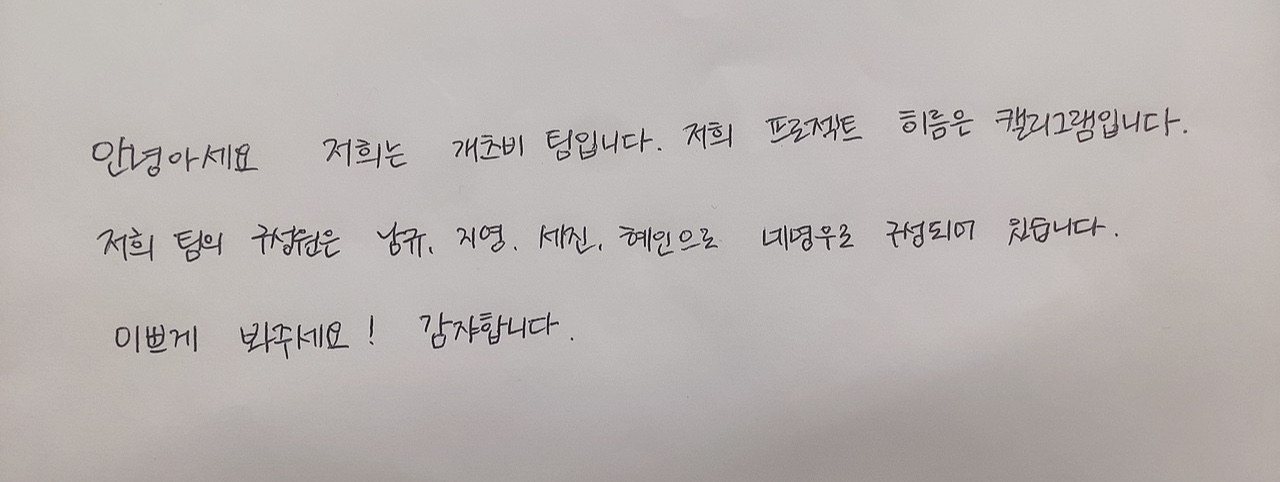 안녕아세요 저희는 개초비 팀입니다. 저희 프로젝트 히름은 캘리그램입니다.
저희 팀의 구성원은 남규, 지영, 세진, 혜인으로 네명우로 구성되어 있습니다.
이쁘게 봐주세요! 감쟈합니다.